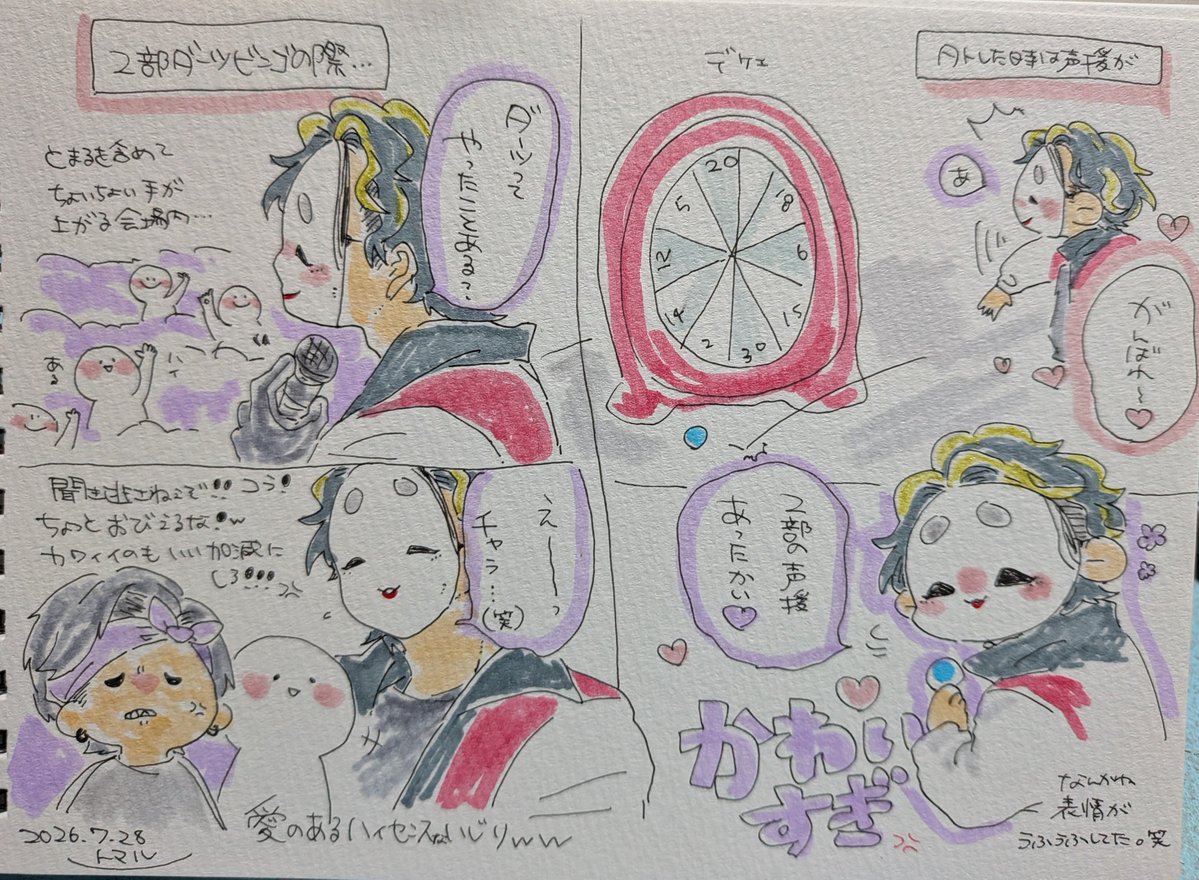 2部ダーツビンゴの際…
とまるを含めて
ちょいちょい手が
上がる会場内…
ダーツって
やったことある?
ハイ
ある
聞き逃さねぇぞ!!コラ!
ちょっとおびえるな!w
カワイイのもいい加減に
しろ!!!
えーーーっ
チャラ…
(笑)
愛のあるハイセンスないじりww
2026.7.28
トマル
デケェ
20
5
18
12
6
14
15
2
30
ハトした時は声援が
あ
がんばれ〜
2部の声援
あったかい
かわい
すぎ
なんかね
表情が
うふうふしてた。笑